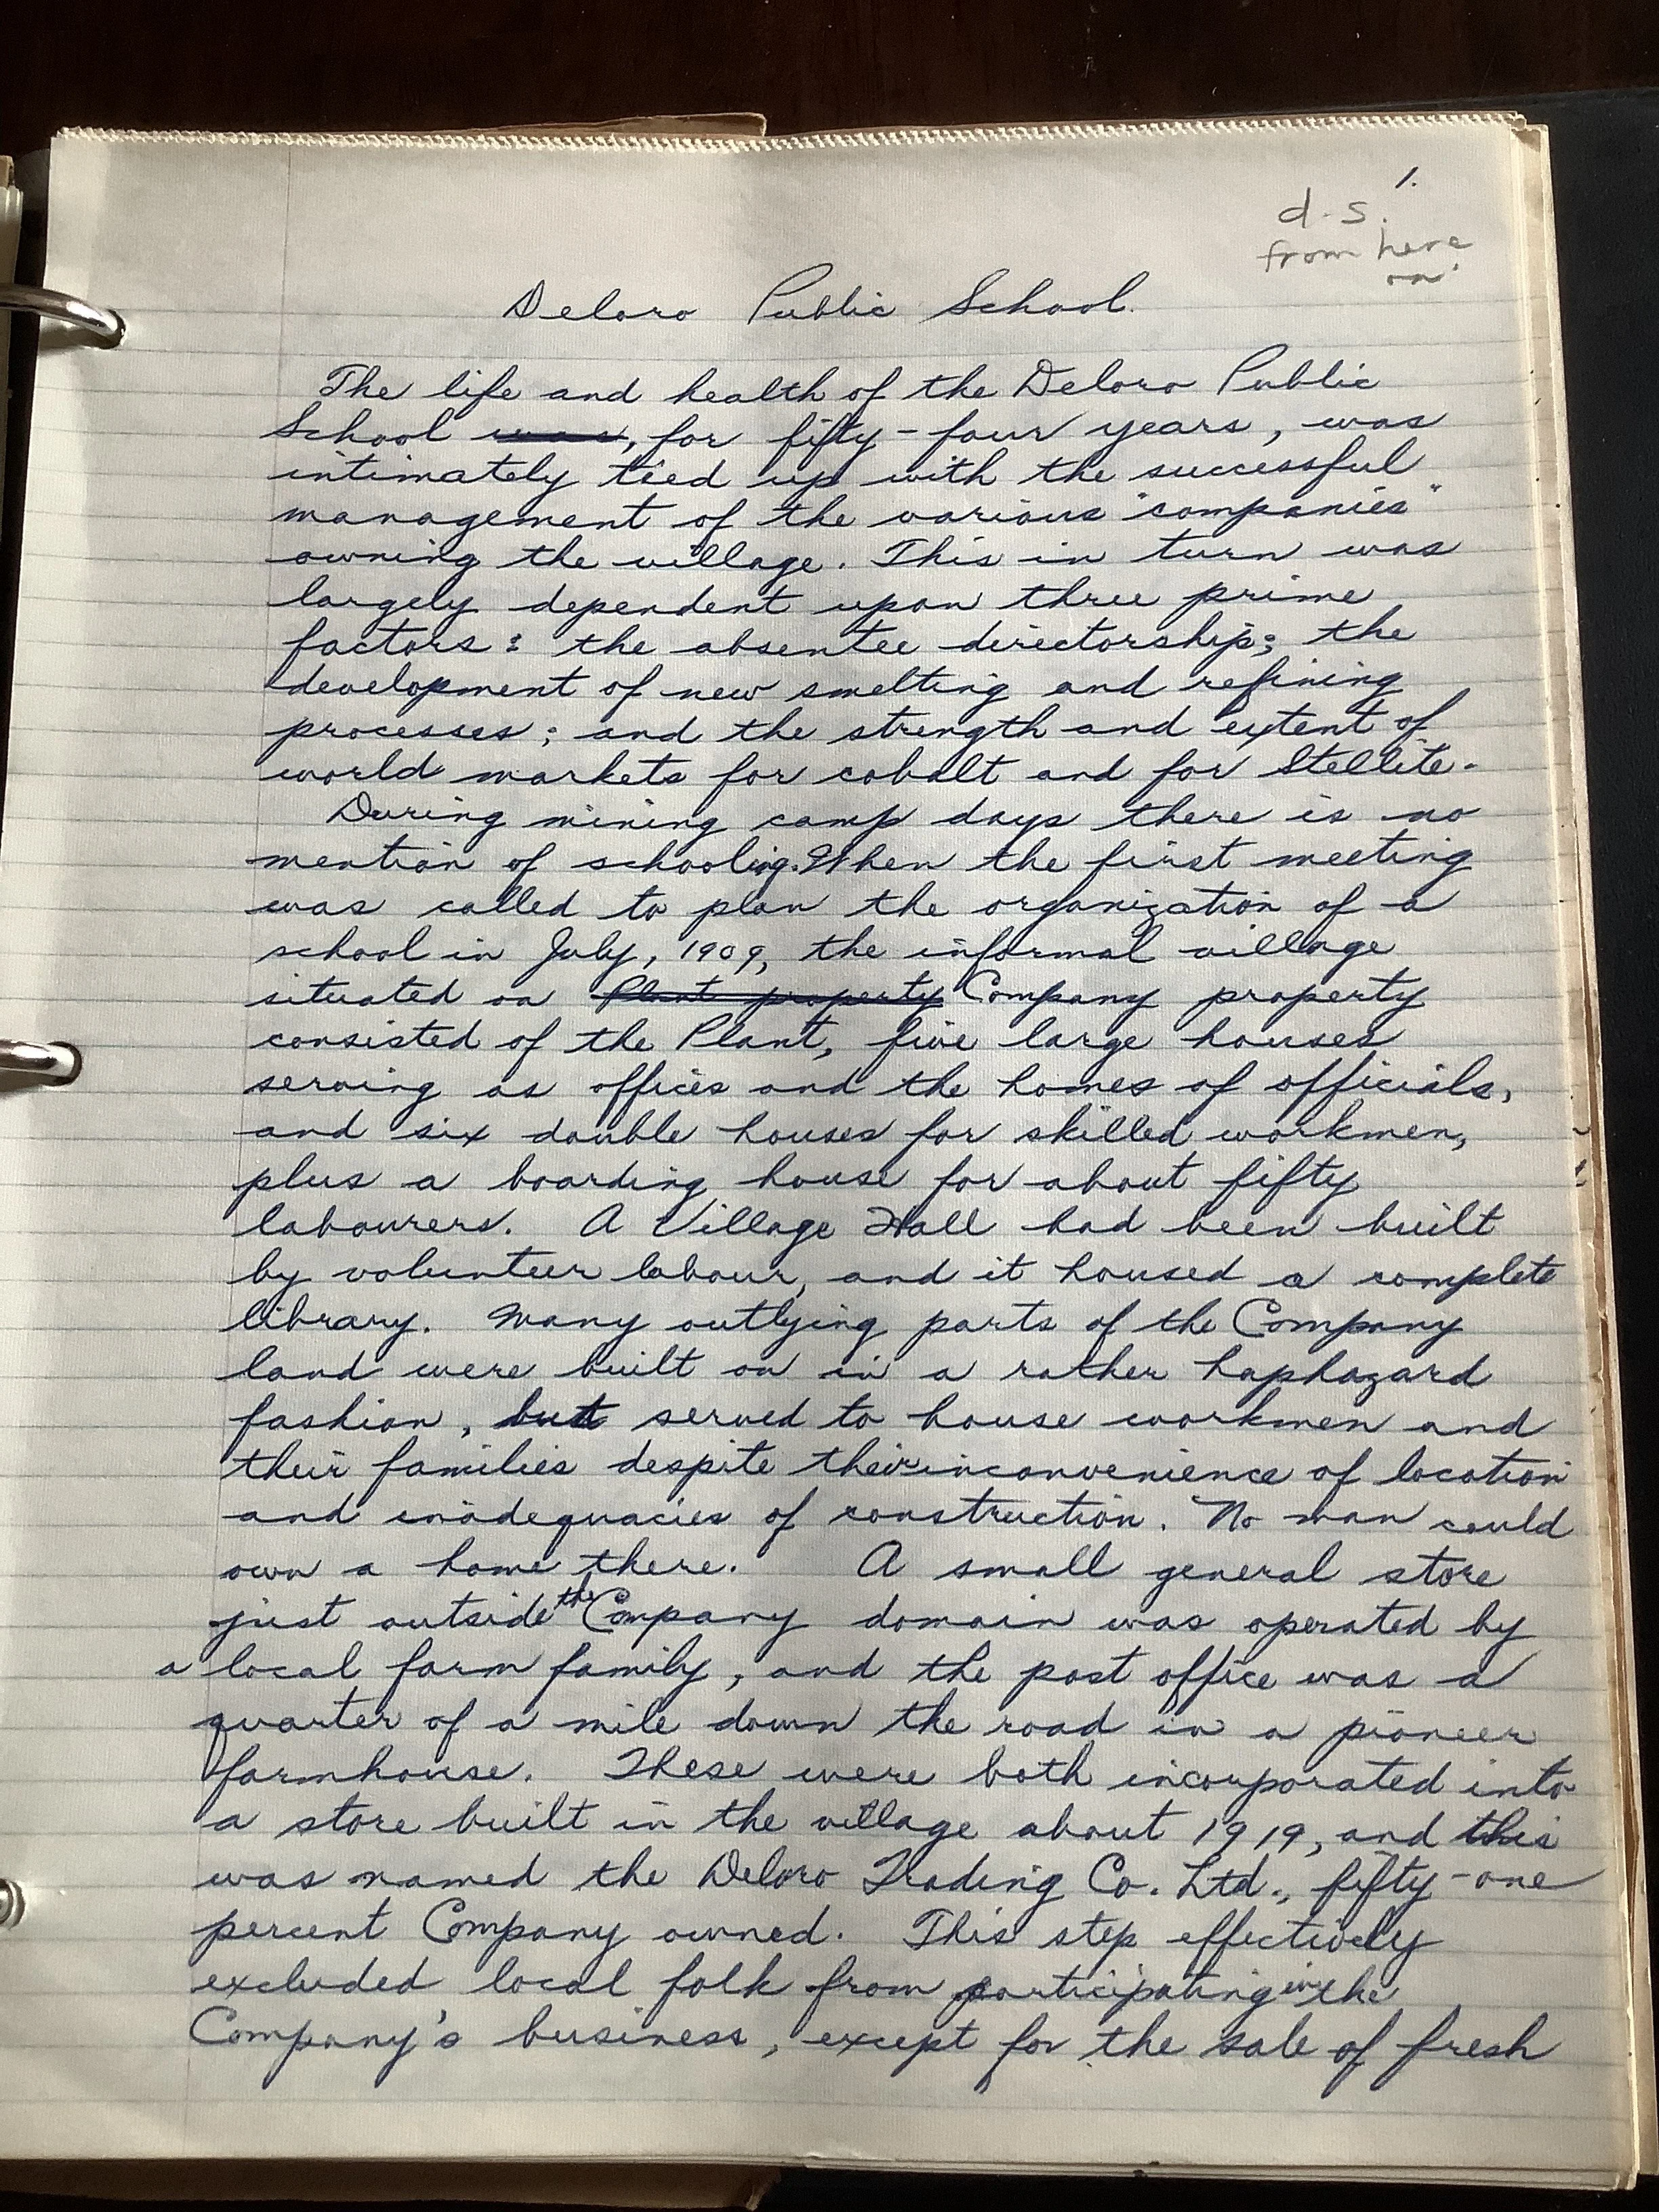 1.
d.s.
from here
on
Deloro Public School.
The life and health of the Deloro Public
School was, for fifty-four years, was
intimately tied up with the successful
management of the various "companies"
owning the village. This in turn was
largely dependent upon three prime
factors: the absentee directorship; the
development of new smelting and refining
processes; and the strength and extent of
world markets for cobalt and for Stellite.
During mining camp days there is no
mention of schooling. When the first meeting
was called to plan the organization of a
school in July, 1909, the informal village
situated on Plant property Company property
consisted of the Plant, five large houses
serving as offices and the homes of officials,
and six double houses for skilled workmen,
plus a boarding house for about fifty
labourers. A Village Hall had been built
by volunteer labour, and it housed a complete
library. Many outlying parts of the Company
land were built on in a rather haphazard
fashion, but served to house workmen and
their families despite their inconvenience of location
and inadequacies of construction. No man could
own a home there. A small general store
just outside the Company domain was operated by
a local farm family, and the post office was a
quarter of a mile down the road in a pioneer
farmhouse. These were both incorporated into
a store built in the village about 1919, and this
was named the Deloro Trading Co. Ltd., fifty-one
percent Company owned. This step effectively
excluded local folk from participating in the
Company's business, except for the sale of fresh